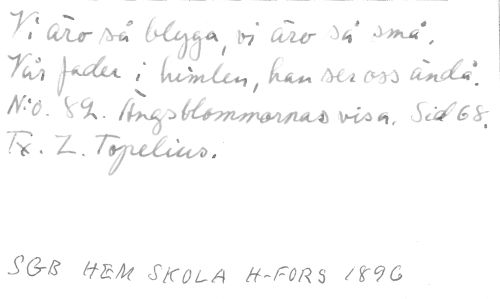 Vi äro så blyga, vi äro så små.
Vår fader i himlen, han ser oss ändå.
N:o. 82. Ängsblommornas visa. Sid 68.
Tx. Z. Topelius.
SGB HEM SKOLA H-FORS 1896